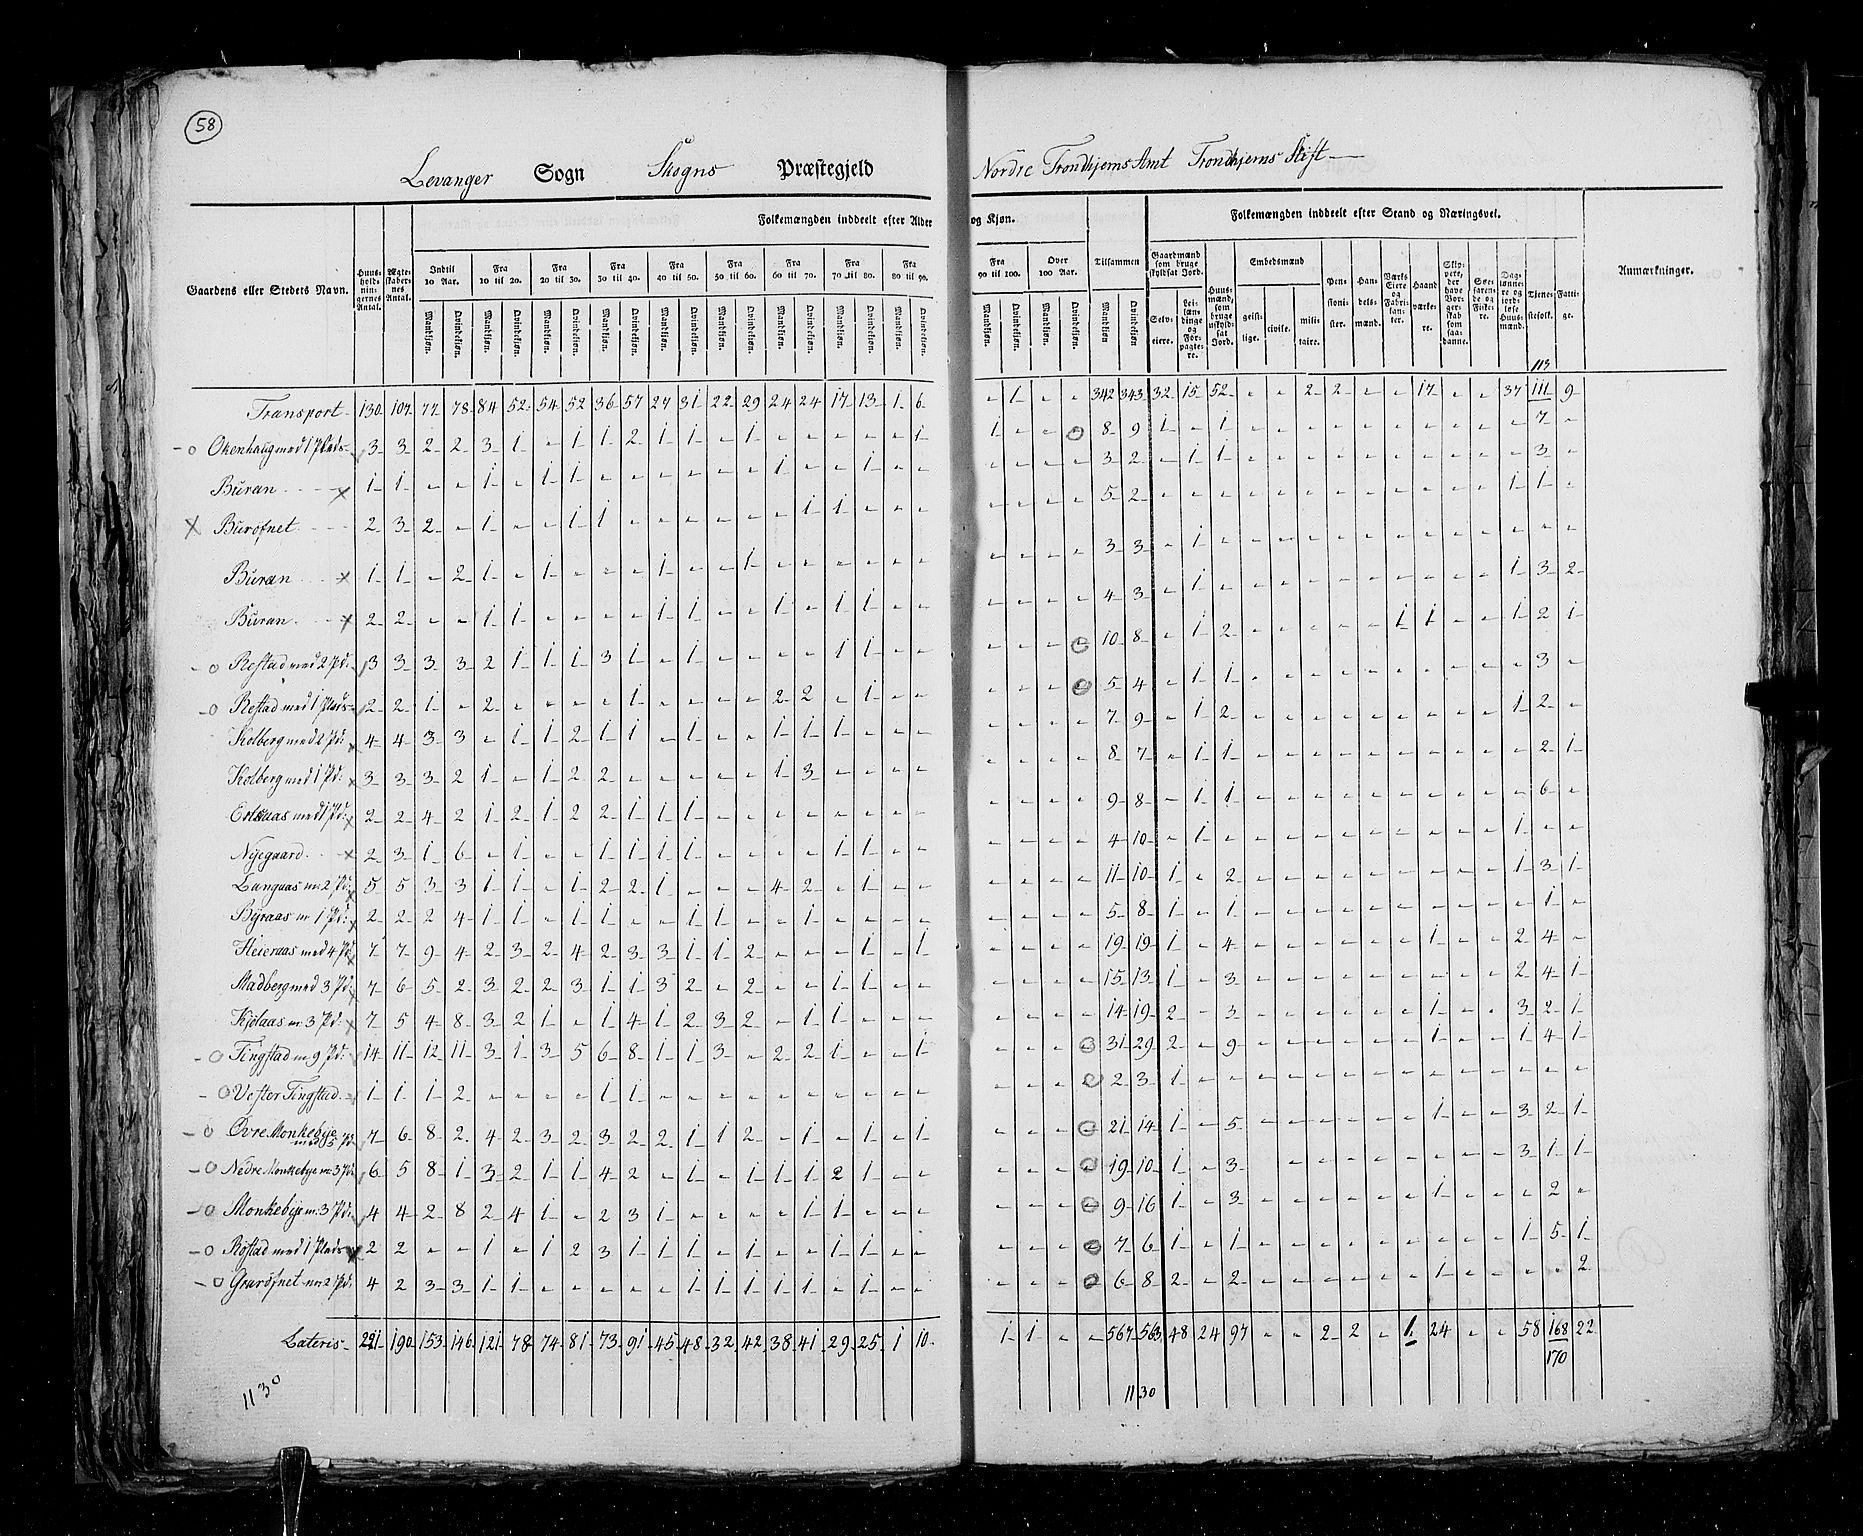 58
Levanger Sogn Skogns Præstegjeld Nordre Trondhjems Amt Trondhjems Stift
Folkemængden inddeelt efter Alder og Kjøn. Folkemængden inddeelt efter Stand og Næringsvei.
Gaardens eller Stedets Navn. Huusholdningernes Antal. Ægteskabernes Antal. Indtil 10 Aar. Fra 10 til 20. Fra 20 til 30. Fra 30 til 40. Fra 40 til 50. Fra 50 til 60. Fra 60 til 70. Fra 70 til 80. Fra 80 til 90. Fra 90 til 100. Over 100 Aar. Tilsammen Gaardmænd som bruge skyldsat Jord. Huusmænd, som bruge uskyldsat Jord. Embedsmænd Pensionister. Handelsmænd. Værks Eiere og Fabrikanter. Haandværkere. Skippere, der have Borgerskab som saadanne. Søefarende og Fiskere. Daglønnere og jordløse Huusmænd. Tjenestefolk. Fattige. Anmærkninger.
Mandkjøn. Qvindekjøn. Mandkjøn. Qvindekjøn. Mandkjøn. Qvindekjøn. Mandkjøn. Qvindekjøn. Mandkjøn. Qvindekjøn. Mandkjøn. Qvindekjøn. Mandkjøn. Qvindekjøn. Mandkjøn. Qvindekjøn. Mandkjøn. Qvindekjøn. Mandkjøn. Qvindekjøn. Mandkjøn. Qvindekjøn. Mandkjøn Qvindekjøn. Selveiere. Leilændinge og Forpagtere. geistlige. civile. militaire.
113
Transport 130 107 77 78 84 52 54 52 36 57 27 31 22 29 24 24 17 13 1 6 - 1 - - 342 343 32 15 52 - - 2 2 - - 17 - - 37 111 9
Okenhaug med 1 Plads 3 3 2 2 3 1 - 1 1 2 1 1 - 1 - - - - - 1 1 - - - 8 9 1 - 1 - - - - - - - - - - 7 -
Buran 1 1 - - 1 - 1 1 - - - - - - 1 - - 1 - - - - - - 3 2 - 1 1 - - - - - - - - - - 3 -
Burofnet 2 3 2 - 1 - - 1 1 - - - - - - 1 1 - - - - - - - 5 2 - - - - - - - - - - - - 1 1 -
Buran 1 1 - 2 1 - 1 - - - 1 - - 1 - - - - - - - - - - 3 3 - 1 - - - - - - - - - - - - -
Buran 2 2 - - 1 1 - - - - 1 1 - - 1 - 1 1 - - - - - - 4 3 - 1 - - - - - - - - - - 1 3 2
Restad med 2 Pd: 3 3 3 3 2 1 1 1 3 1 - 1 - - - - 1 1 - - - - - - 10 8 - 1 2 - - - - - 1 1 - - 1 2 1
Restad med 1 Plads 2 2 1 - 2 - - - - 1 - - - - 2 2 - 1 - - - - - - 5 4 - 1 1 - - - - - - - - - - 3 -
Kolberg med 2 Pd: 4 4 3 3 - 1 1 2 1 1 - 1 - - 1 1 1 - - - - - - - 7 9 - 1 2 - - - - - - - - - 1 2 -
Kolberg med 1 Pd: 3 3 3 2 1 - 1 2 2 - - - - - 1 3 - - - - - - - - 8 7 - 1 1 - - - - - - - - - - 2 1
med 1 Pd: 2 2 4 2 1 2 1 2 2 1 1 1 - - - - - - - - - - - - 9 8 - 1 1 - - - - - - - - - - 6 -
Nyegaard 2 3 1 6 - 1 - - 1 1 1 1 - - - - 1 1 - - - - - - 4 10 - 1 - - - - - - - - - - 1 - -
Langaas m: 2 Pd: 5 5 3 3 1 1 - 1 2 2 1 - - - 4 2 - 1 - - - - - - 11 10 1 - 2 - - - - - - - - - 1 3 1
Byraas m 1 Pd: 2 2 2 4 1 1 - 1 1 - - 1 1 - - 1 - - - - - - - - 5 8 1 - 1 - - - - - - - - - - 1 -
Heieraas med 4 Pd 7 7 9 4 2 3 2 4 2 3 3 1 1 2 - - - 1 - 1 - - - - 19 19 1 - 4 - - - - - - 1 - - 2 4 -
Stadberg med 3 Pd: 7 6 5 2 3 2 2 3 1 1 3 2 - 2 - - 1 1 - - - - - - 15 13 1 - 3 - - - - - - - - - 2 4 1
Kjölaas m: 3 Pd: 7 5 4 8 3 2 1 - 1 4 1 2 3 2 - 1 1 - - - - - - - 14 19 2 - 3 - - - - - - 1 - - 3 2 1
Tingstad m 9 Pd: 14 11 12 11 3 1 3 5 6 8 1 1 3 - 2 2 1 - - 1 - - - - 31 29 2 - 9 - - - - - - 1 - - 1 4 1
Vester Tingstad 1 1 1 2 - - - - 1 1 - - - - - - - - - - - - - - 2 3 1 - - - - - - - - - - - - - -
Övre Monkebye med 5 Pd 7 6 8 2 4 2 3 2 3 2 2 1 1 2 - 1 - 1 - 1 - - - - 21 14 1 - 5 - - - - - - 1 - - 3 2 1
Nedre Monkebye m: 3 Pd: 6 5 8 1 3 2 1 1 4 2 - 1 - 1 1 1 2 1 - - - - - - 19 10 1 - 3 - - - - - - - - - 3 1 1
Monkebye m: 3 Pd: 4 4 2 8 2 4 1 - 2 3 1 - - - - 1 1 - - - - - - - 9 16 1 - 3 - - - - - - 1 - - - 2 -
Röstad med 1 Plads 2 2 - - 1 - 1 2 3 1 1 1 - 1 - - 1 1 - - - - - - 7 6 1 - 1 - - - - - - - - - 1 5 1
Gravofnet m: 2 Pd: 4 2 3 3 1 1 - - - - - 1 1 1 1 1 - 1 - - - - - - 6 8 2 - 2 - - - - - - 1 - - - - 2
Lateris 221 190 153 146 121 78 74 81 73 91 45 48 32 42 38 41 29 25 1 10 1 1 - - 567 563 48 24 97 - - 2 2 - 1 24 - - 58 168 22
170
1130
1130